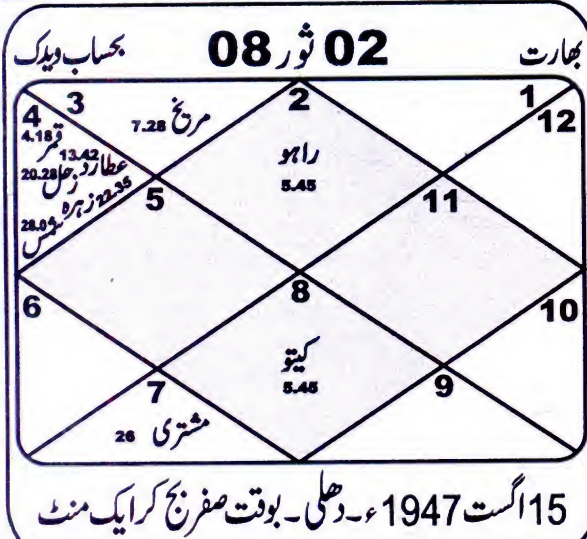 بھارت 02 ثور 08 بحساب ویدک
2
1
12
3
4
مریخ 7.28
قمر 4.18
عطارد 13.42
زحل 20.28
زہرہ 22.35
شمس 28.04
راہو
5.45
5
11
8
6
10
کیتو
5.45
7
9
مشتری 26
15 اگست 1947ء۔ دھلی۔ بوقت صفر بج کر ایک منٹ